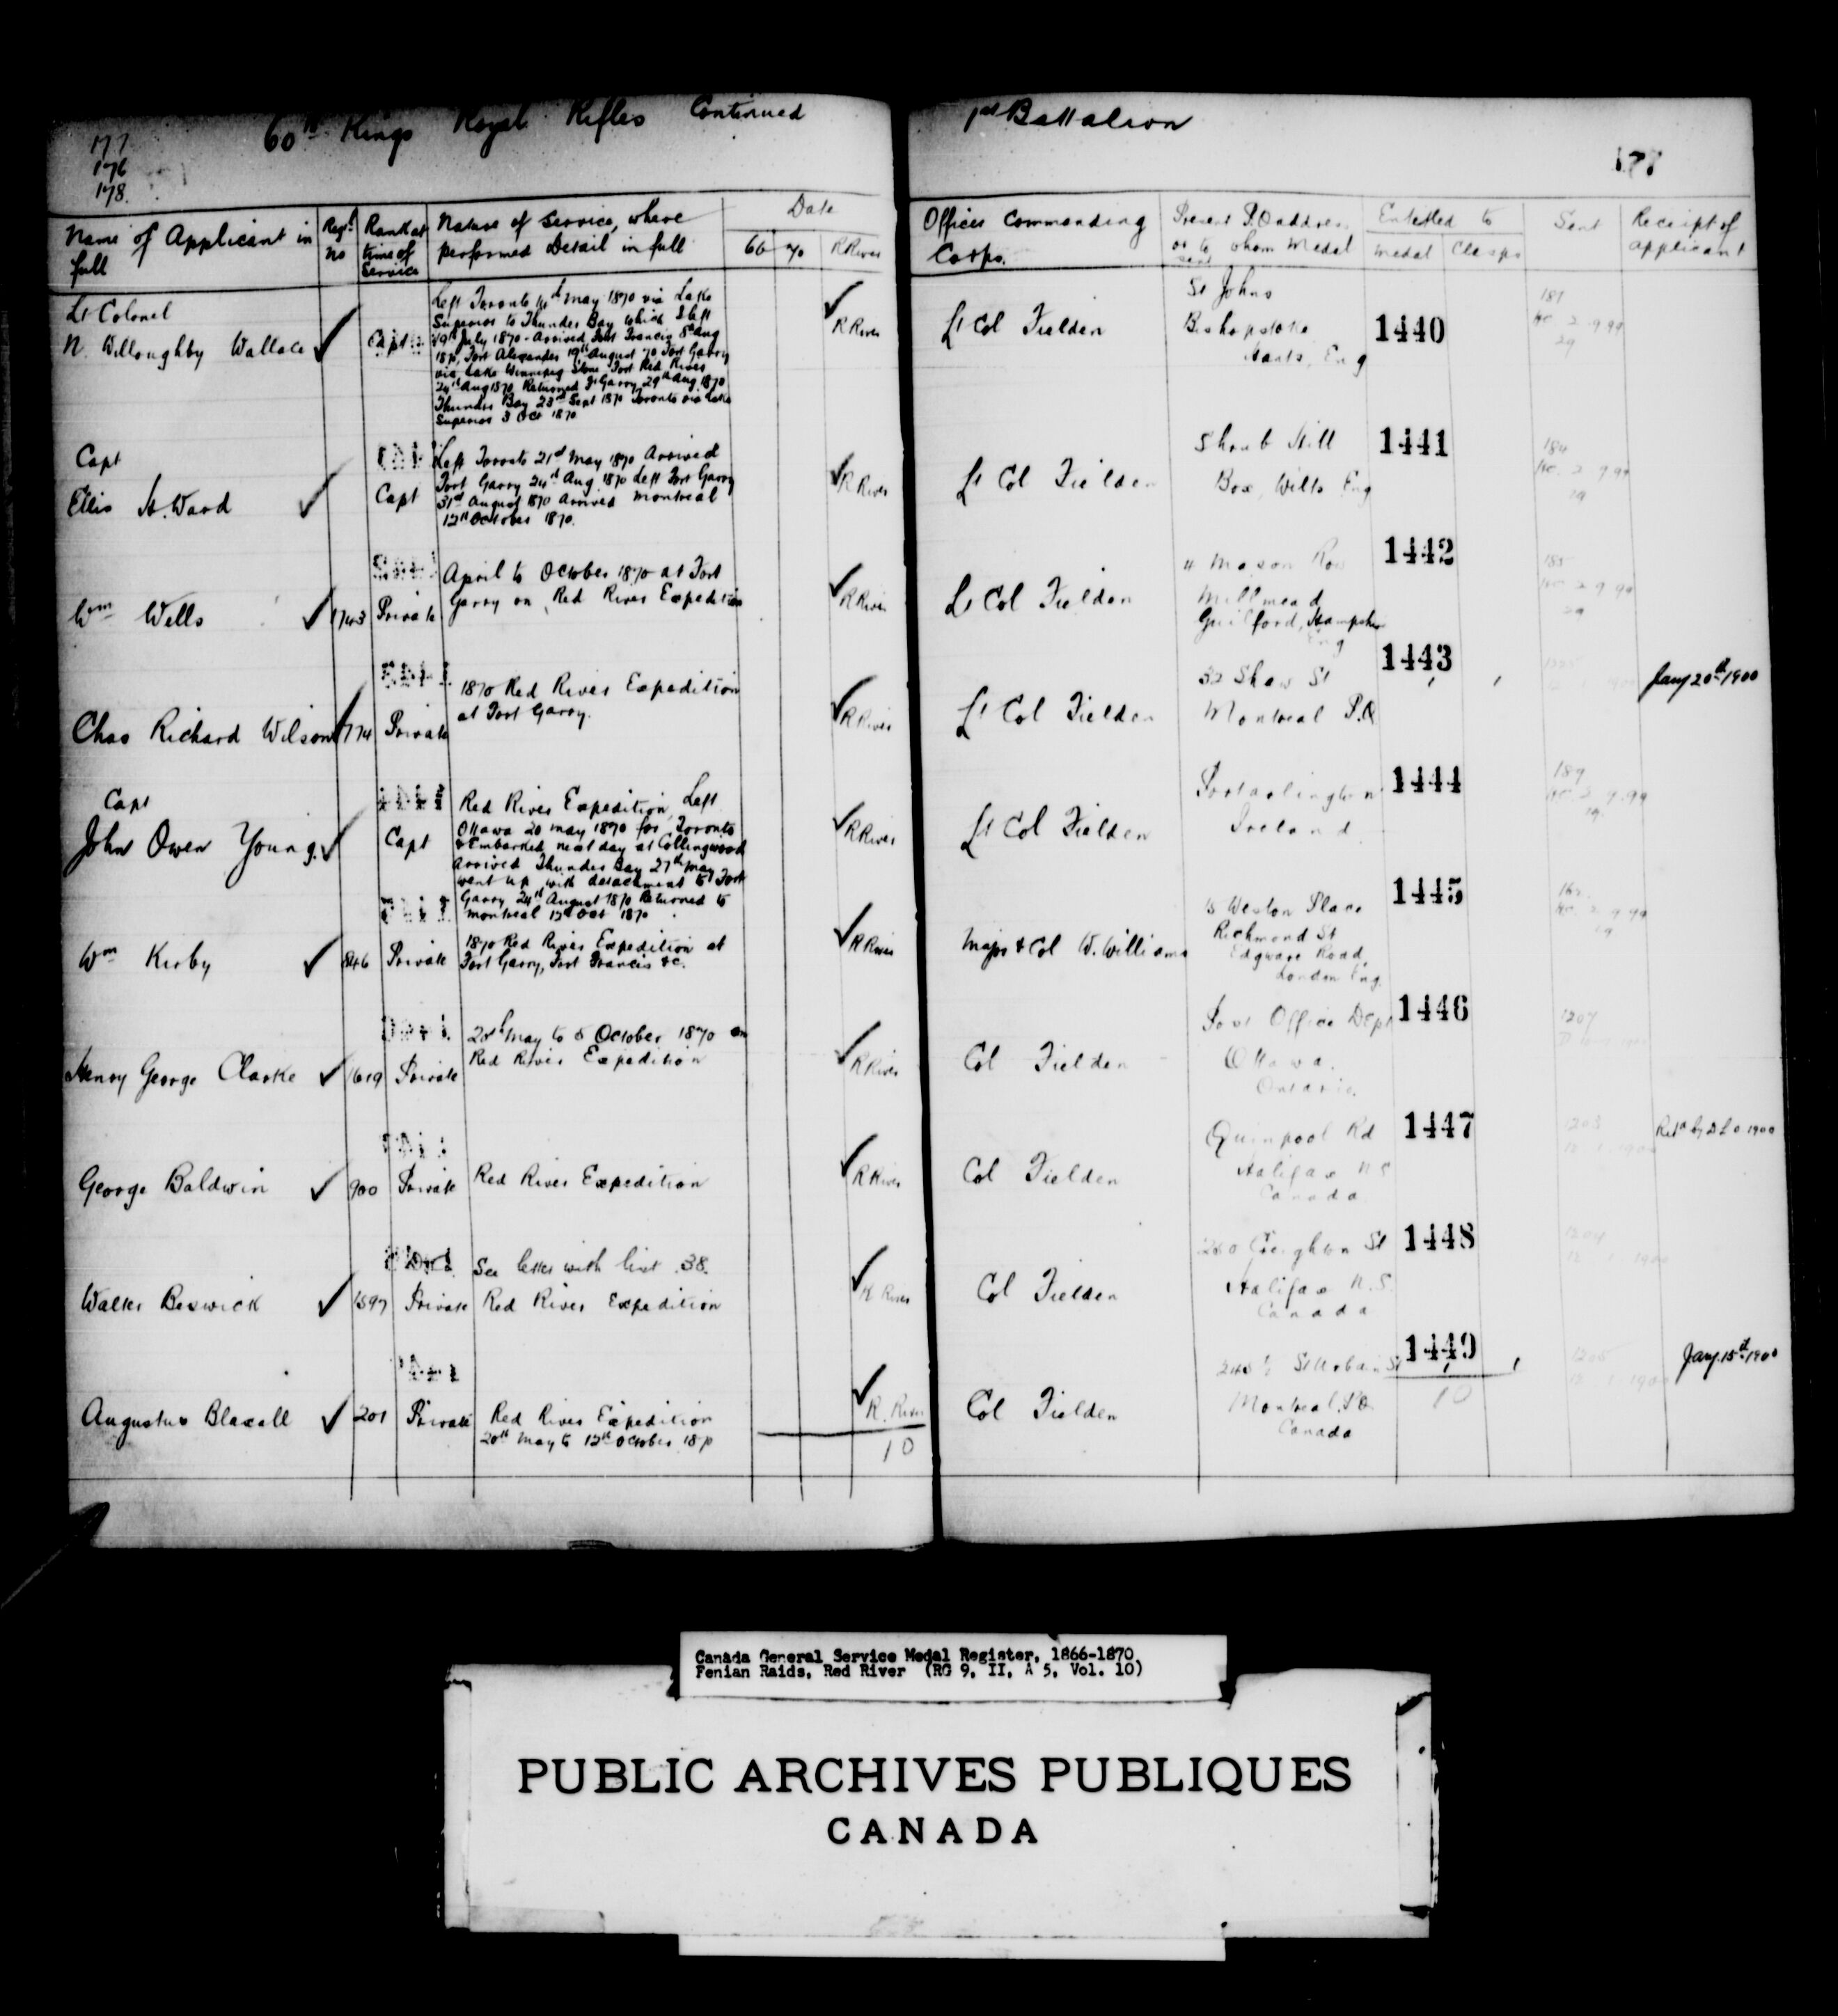 60th Kings Royal Rifles Continued
1st Battalion
177
176
178.
177
Name of Applicant in full
Regtl no
Rank at time of Service
Nature of Service, where performed Detail in full
Date
66
70
R River
Officer Commanding Corps.
Present P.O address or to whom Medal sent
Entitled to
Medal
Clasps
Sent
Receipt of applicant
Lt Colonel
N. Willoughby Wallace
Capt
Left Toronto 14th May 1870 via Lake
Superior to Thunder Bay which I left
19th July 1870 - Arrived Fort Francis 8th Aug
1870, Fort Alexander 19th August 70 Fort Garry
via Lake Winnipeg Stone Fort Red River
24th Aug 1870. Returned Ft Garry 29th Aug. 1870
Thunder Bay 23rd Sept 1870 Toronto via Lake
Superior 3 Oct 1870
R River
Lt Col Fielden
St Johns
Bishopstoke
Hants, Eng
1440
Capt
Ellis H. Ward
Capt
Left Toronto 21st May 1870 Arrived
Fort Garry 24th Aug 1870 Left Fort Garry
31st August 1870 arrived Montreal
12th October 1870.
R River
Lt Col Fielden
Shrub Hill
Box, Wilts Eng
1441
Wm Wells
1743
Private
April to October 1870 at Fort
Garry on Red River Expedition
R River
Lt Col Fielden
4 Mason Row
Millmead
Guilford, Hampshire
Eng
1442
Chas Richard Wilson
774
Private
1870 Red River Expedition
at Fort Garry.
R River
Lt Col Fielden
32 Shaw St
Montreal P.Q
1443
Jany 20th 1900
Capt
John Owen Young.
Capt
Red River Expedition, Left
Ottawa 20 May 1870 for Toronto
& Embarked next day at Collingwood
arrived Thunder Bay 27th May
went up with detachment to Fort
Garry 24th August 1870 Returned to
Montreal 12th Oct 1870
R River
Lt Col Fielden
Portarlington
Ireland
1444
Wm Kirby
846
Private
1870 Red River Expedition at
Fort Garry, Fort Francis &c.
R River
Major & Col W. Williams
Weston Place
Richmond St
Edgware Road,
London Eng.
1445
Henry George Clarke
1619
Private
May to 5 October 1870 on
Red River Expedition
R River
Col Fielden
Post Office Dept
Ottawa.
Ontario.
1446
1207
George Baldwin
900
Private
Red River Expedition
R River
Col Fielden
Quinpool Rd
Halifax N.S
Canada
1447
1203
1900
Walter Beswick
1597
Private
See letter with list 38.
Red River Expedition
R River
Col Fielden
Creighton St
Halifax N.S.
Canada
1448
1204
1900
Augustus Blaxall
201
Private
Red River Expedition
20th May to 12th October 1870
R. River
10
Col Fielden
St Urbain St
Montreal. P.Q
Canada
1449
10
1205
1900
Jany. 15th 1900
Canada General Service Medal Register, 1866-1870
Fenian Raids, Red River (RG 9, II, A 5, Vol. 10)
PUBLIC ARCHIVES PUBLIQUES
CANADA